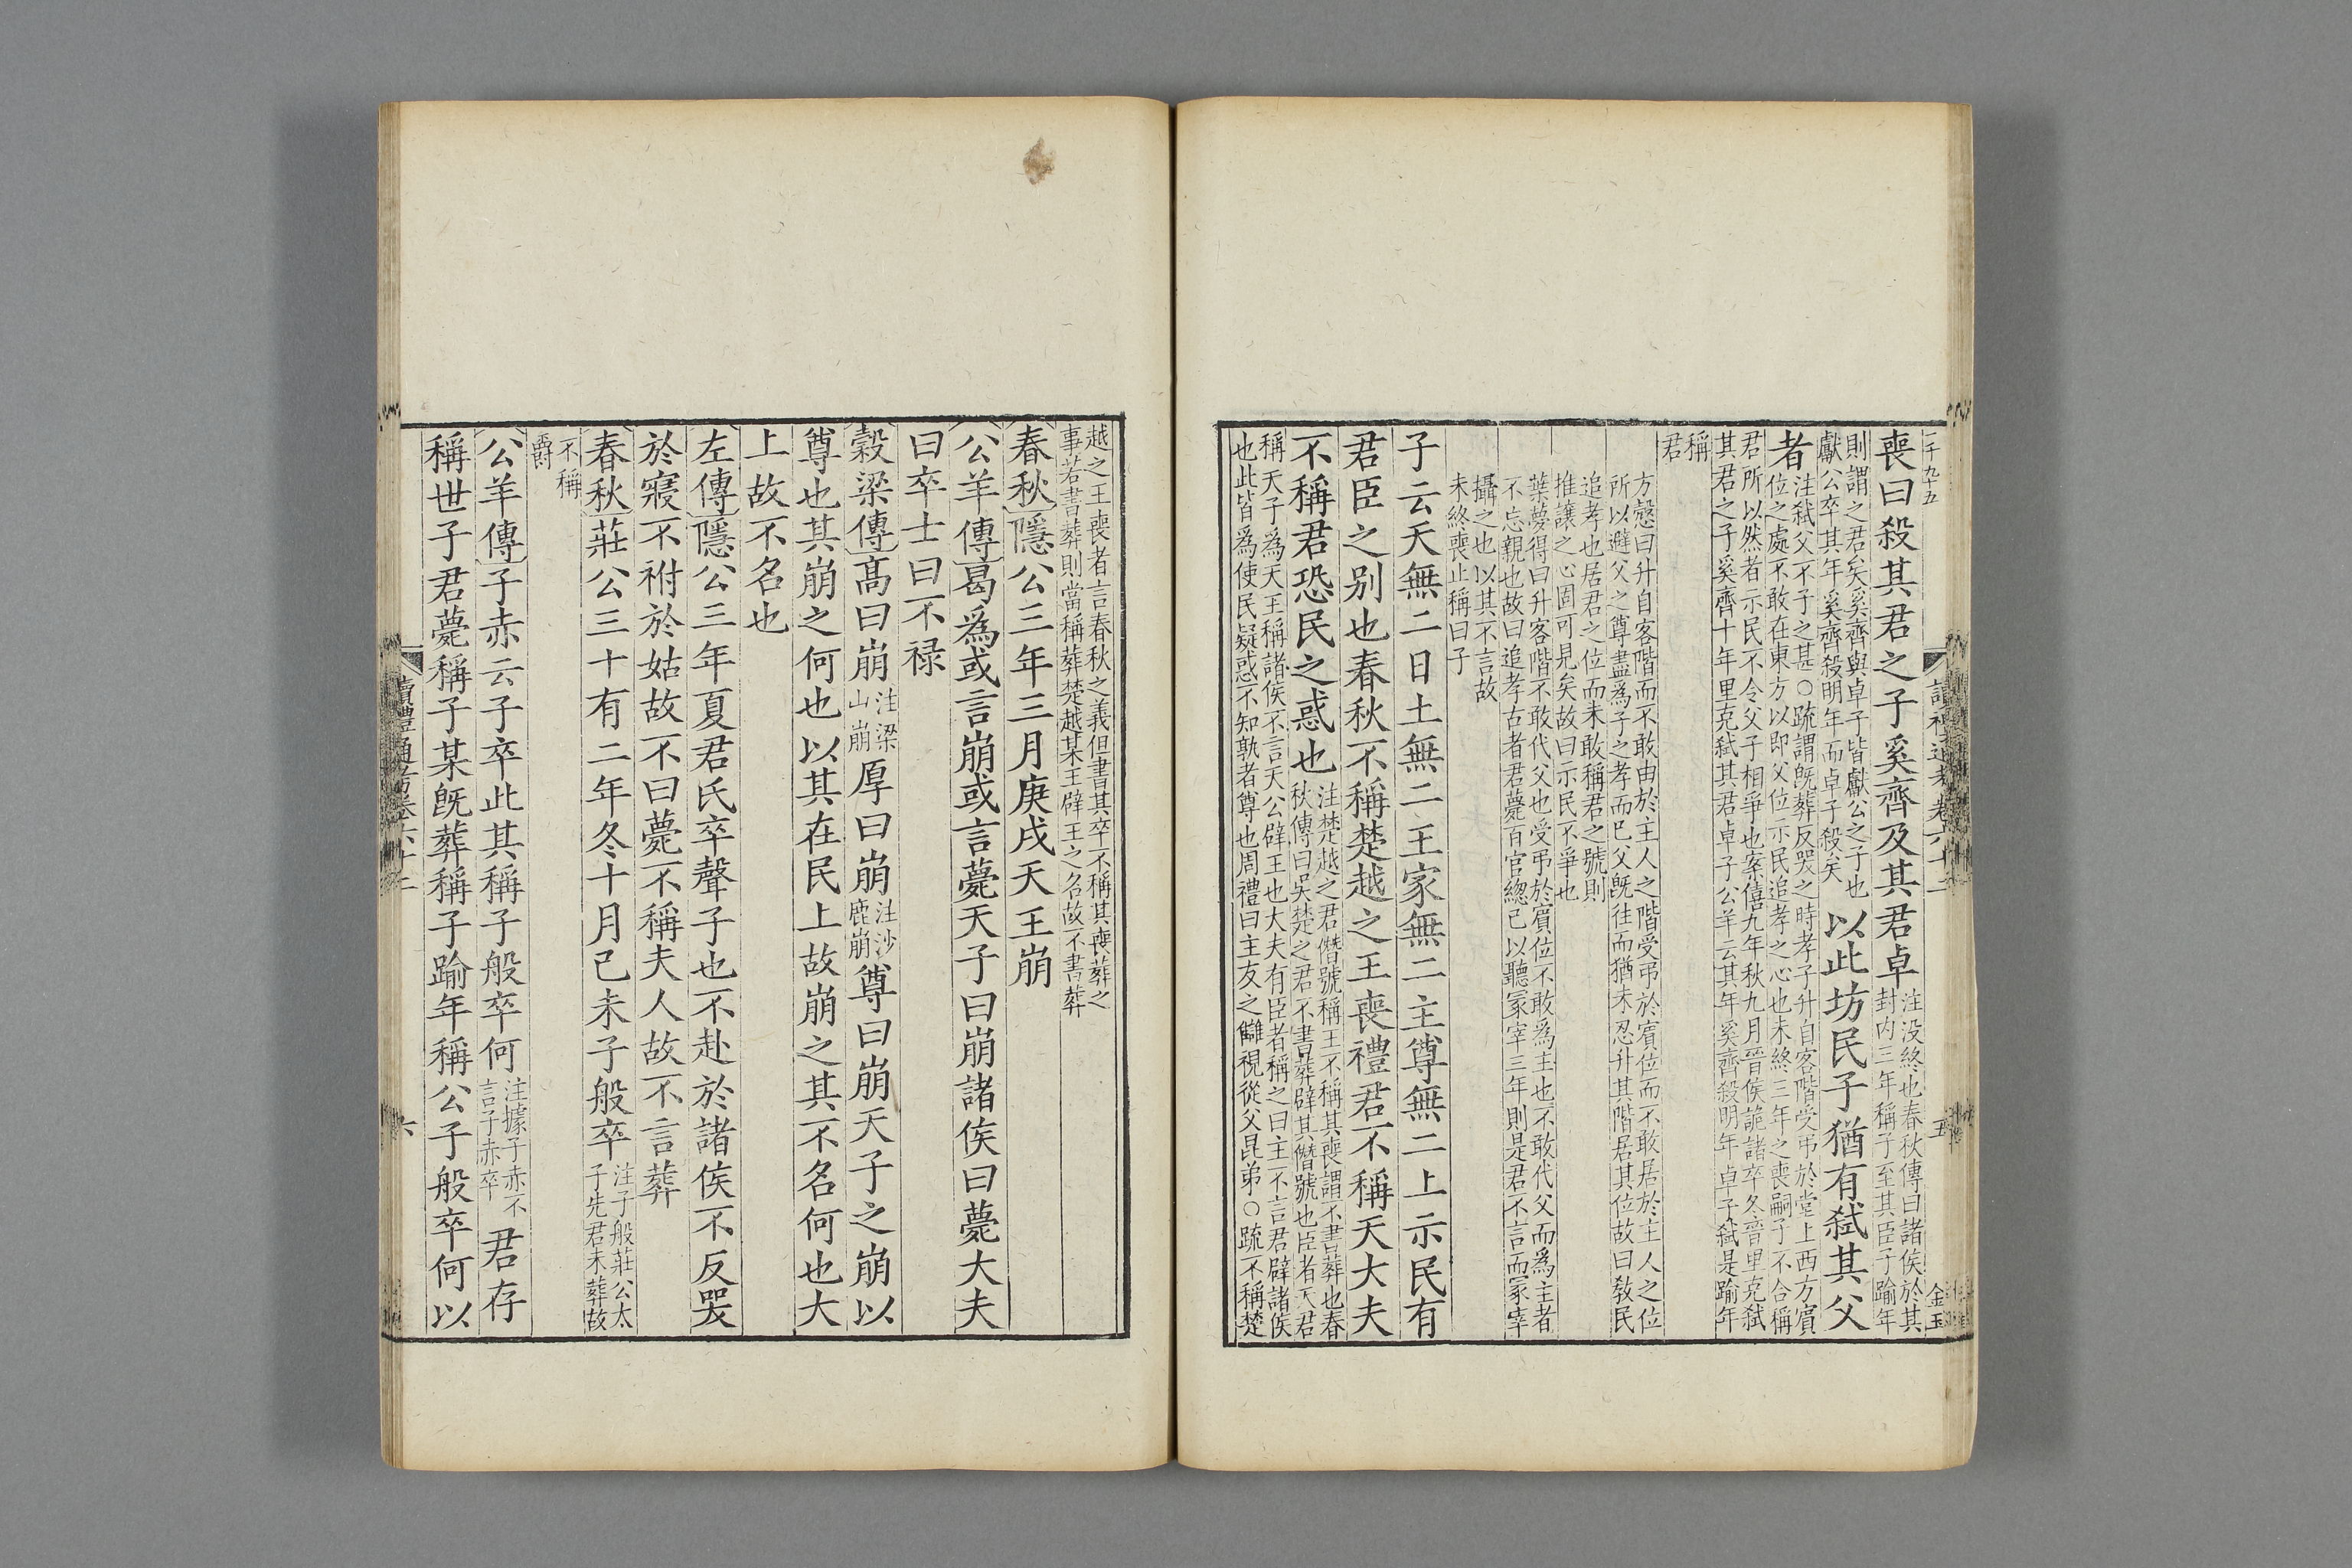 二千九十五
讀禮通考卷六十二
五
金玉
喪曰殺其君之子奚齊及其君卓
注没終也春秋傳曰諸侯於其
封内三年稱子至其臣子踰年
則謂之君矣奚齊與卓子皆獻公之子也
獻公卒其年奚齊殺明年而卓子殺矣
以此坊民子猶有弑其父
者
注弑父不子之甚○疏謂既葬反哭之時孝子升自客階受弔於堂上西方賓
位之處不敢在東方以即父位示民追孝之心也未終三年之喪嗣子不合稱
君所以然者示民不令父子相爭也案僖九年秋九月晉侯詭諸卒冬晉里克弑
其君之子奚齊十年里克弑其君卓子公羊云其年奚齊殺明年卓子弑是踰年
稱
君
方慤曰升自客階而不敢由於主人之階受弔於賓位而不敢居於主人之位
所以避父之尊盡為子之孝而已父既往而猶未忍升其階居其位故曰敎民
追孝也居君之位而未敢稱君之號則
推讓之心固可見矣故曰示民不爭也
葉夢得曰升客階不敢代父也受弔於賓位不敢為主也不敢代父而為主者
不忘親也故曰追孝古者君薨百官總己以聽冢宰三年則是君不言而冢宰
攝之也以其不言故
未終喪止稱曰子
子云天無二日土無二王家無二主尊無二上示民有
君臣之别也春秋不稱楚越之王喪禮君不稱天大夫
不稱君恐民之惑也
注楚越之君僭號稱王不稱其喪謂不書葬也春
秋傳曰吳楚之君不書葬辟其僭號也臣者天君
稱天子為天王稱諸侯不言天公辟王也大夫有臣者稱之曰主不言君辟諸侯
也此皆為使民疑惑不知孰者尊也周禮曰主友之讎視從父昆弟○疏不稱楚
越之王喪者言春秋之義但書其卒不稱其喪葬之
事若書葬則當稱葬楚越某王辟王之名故不書葬
春秋隱公三年三月庚戌天王崩
公羊傳曷爲或言崩或言薨天子曰崩諸侯曰薨大夫
曰卒士曰不禄
穀梁傳高曰崩
注梁
山崩
厚曰崩
注沙
鹿崩
尊曰崩天子之崩以
尊也其崩之何也以其在民上故崩之其不名何也大
上故不名也
左傳隱公三年夏君氏卒聲子也不赴於諸侯不反哭
於寢不祔於姑故不曰薨不稱夫人故不言葬
春秋莊公三十有二年冬十月己未子般卒
注子般莊公太
子先君未葬故
不稱
爵
公羊傳子赤云子卒此其稱子般卒何
注據子赤不
言子赤卒
君存
稱世子君薨稱子某旣葬稱子踰年稱公子般卒何以
讀禮通考卷六十二
六